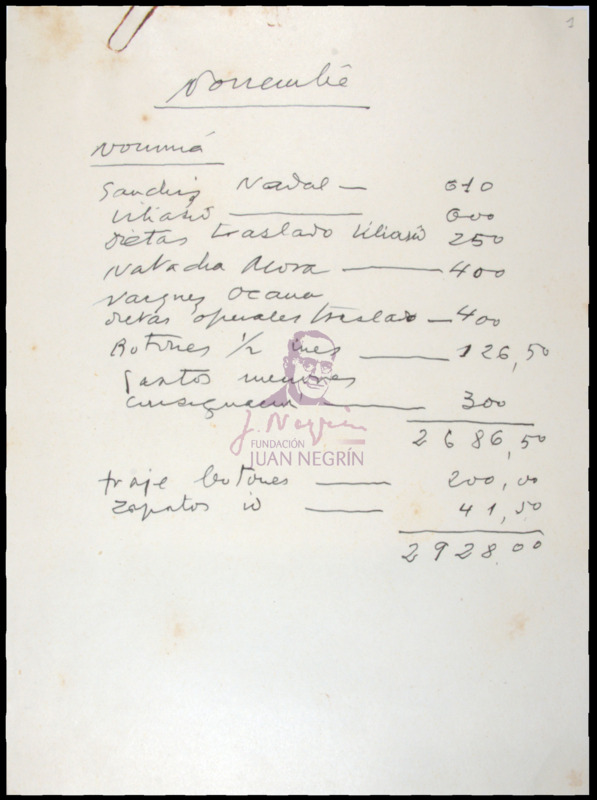 1
Noviembre
Nomina
Sanchez Nadal — 610
600
Dietas traslado 250
Natacha Mora — 400
Vazquez Ocaña
dietas traslado — 400
Botones 1/2 mes — 126,50
Gastos menores
consignacion — 300
2686,50
J. Negrín
FUNDACIÓN
JUAN NEGRÍN
traje botones — 200,00
Zapatos id — 41,50
2928.00